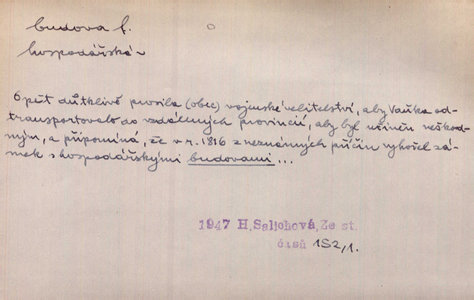 budova f.
hospodářská
Opět důtklivě prosila (obec) vojenské velitelství, aby Vaňka od-
transportovalo do vzdálených provincií, aby byl učiněn neškod-
ným, a připomíná, že v r. 1816 z neznámých příčin vyhořel zá-
mek s hospodářskými budovami ...
1947 H. Salichová, Ze st.
časů 152,1.